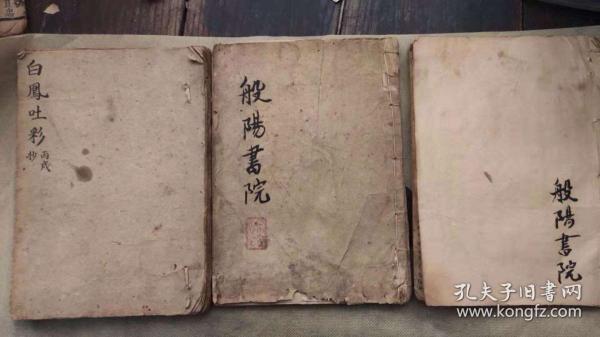 白鳳吐彩
丙戌
抄
般陽書院
般陽書院
孔夫子旧書网
www.kongfz.com